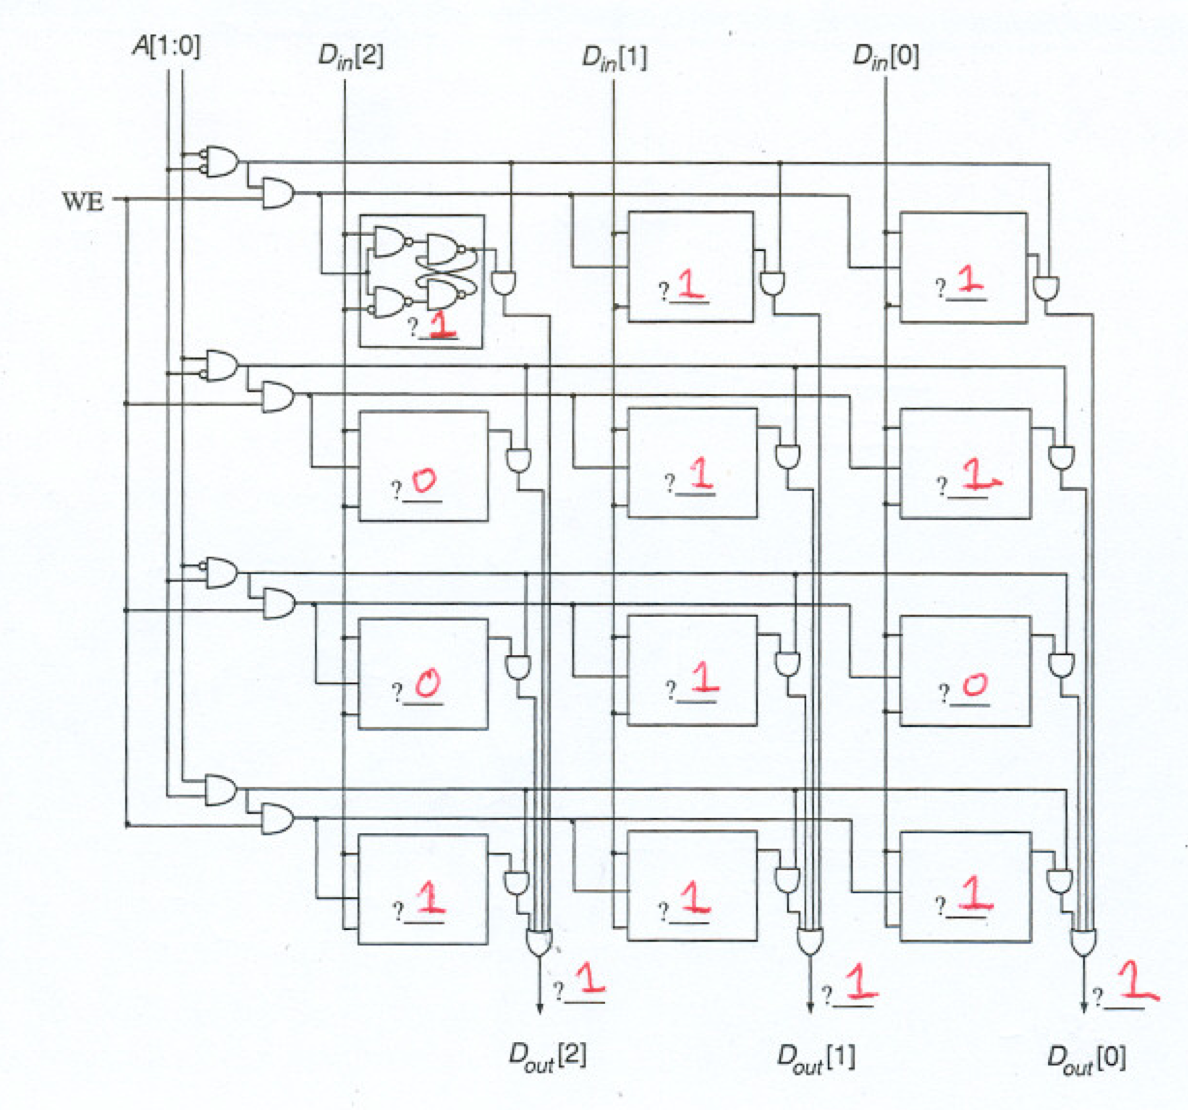 A[1:0]
D_in[2] D_in[1] D_in[0]
WE
? 1 ? 1 ? 1
? 0 ? 1 ? 1
? 0 ? 1 ? 0
? 1 ? 1 ? 1
? 1 ? 1 ? 1
D_out[2] D_out[1] D_out[0]